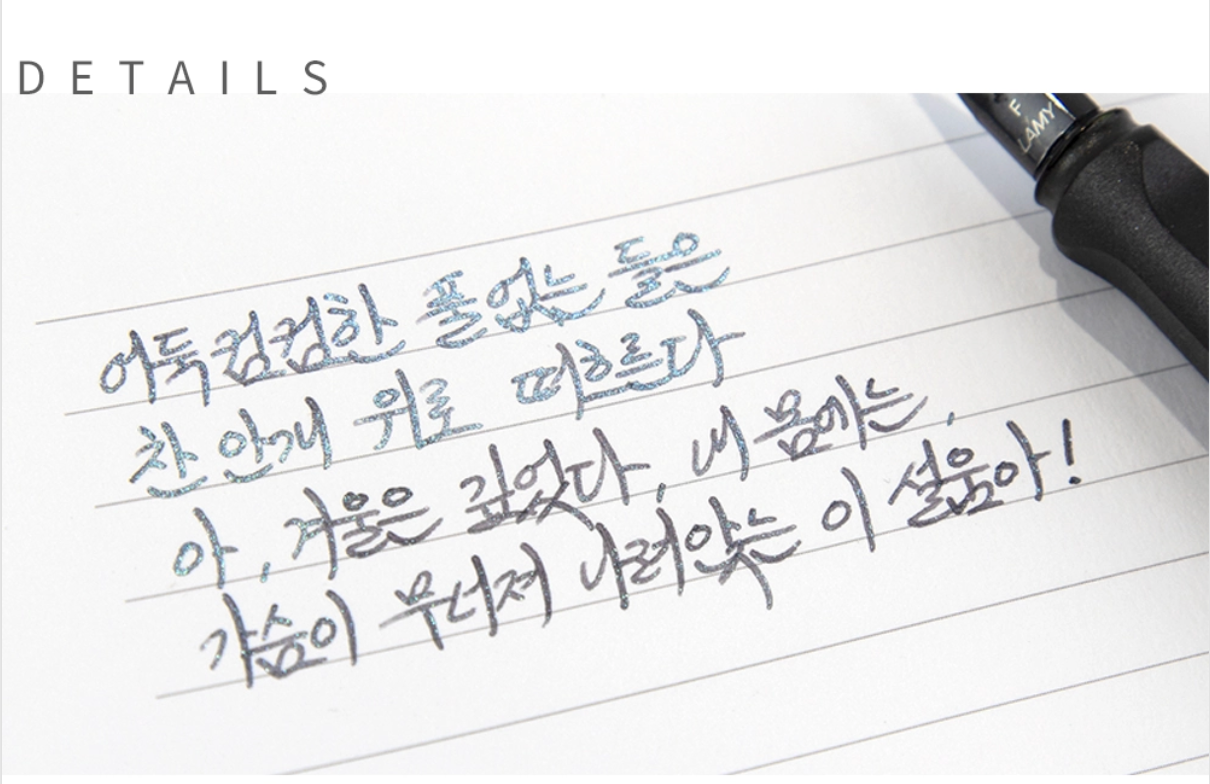 DETAILS
F
LAMY
어둑컴컴한 풀없는 들은
찬 안개 위로 떠흐르다
아, 겨울은 깊었다, 내 몸에는,
가슴이 무너져 나려앉는 이 설움아!